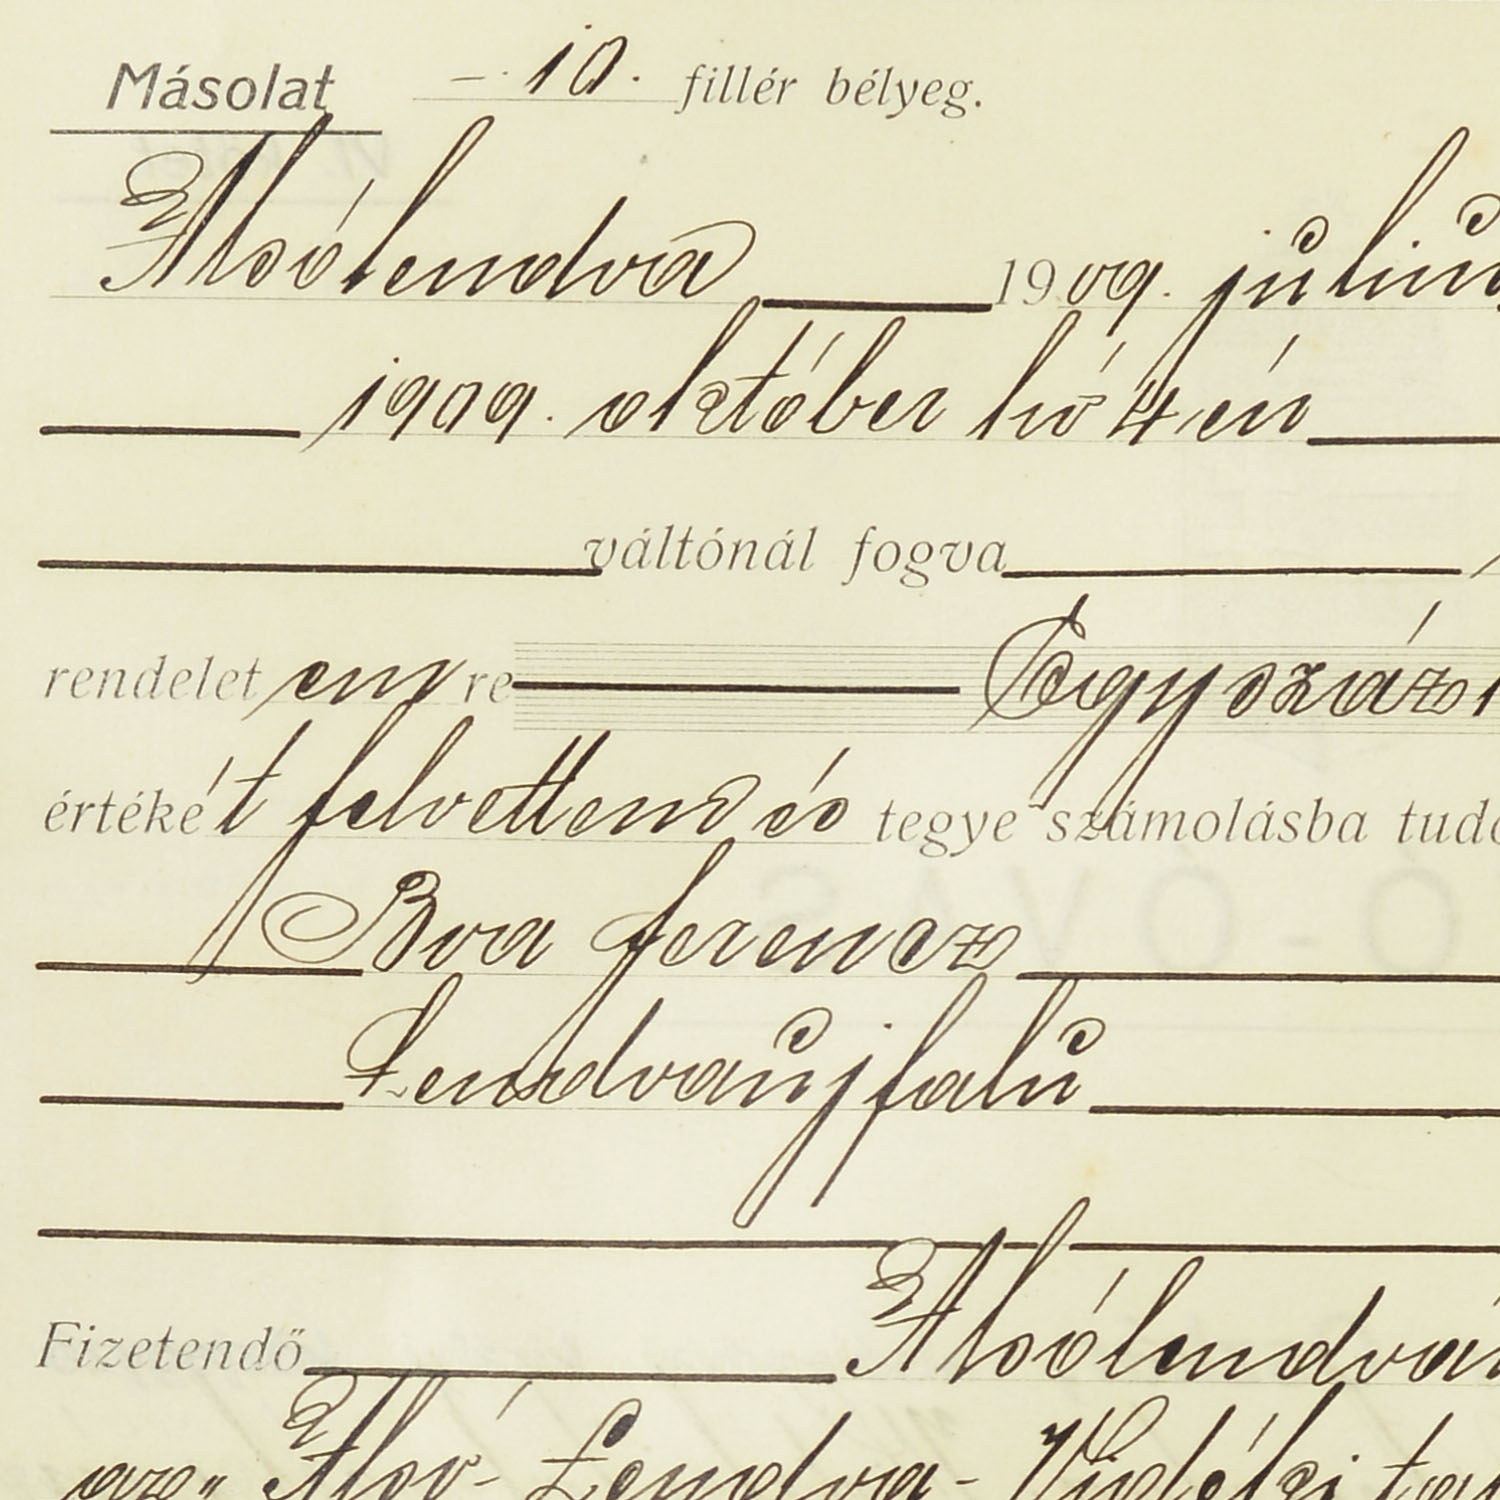 Másolat —. 10. fillér bélyeg.
Alsólendva 1909. július
1909. október hó 4 én
váltónál fogva
rendeletemre Egyszáz
értékét felvettem és tegye számolásba tudó
Bva Ferencz
Lendvaujfalu
Fizetendő Alsólendván
az „Alsó-Lendva-Vidéki tak